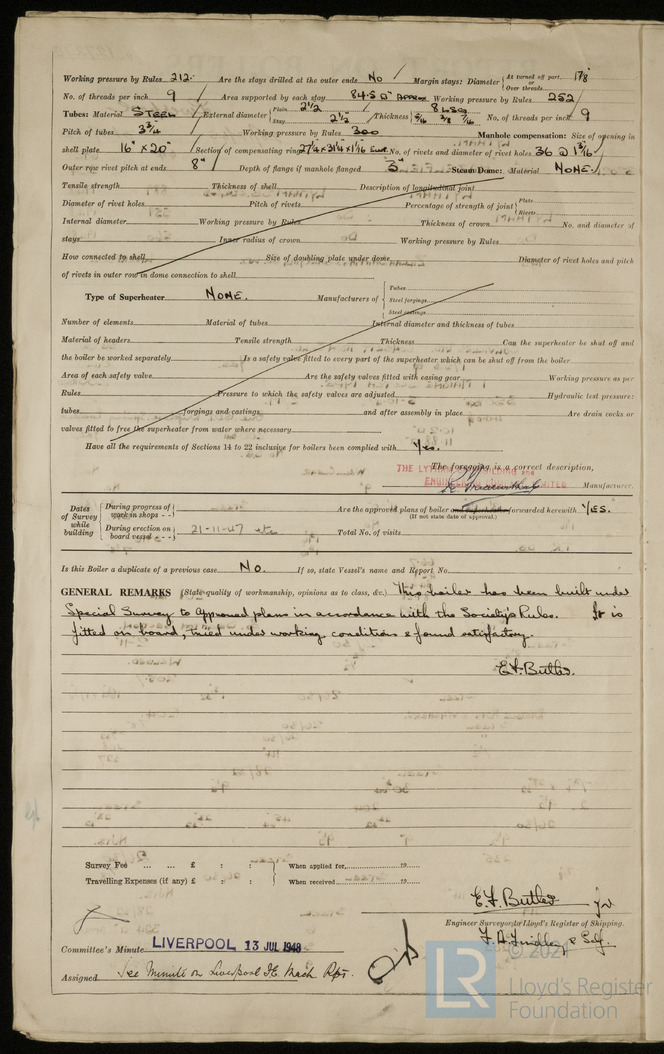 Working pressure by Rules 212. Are the stays drilled at the outer ends No Margin stays: Diameter { At turned off part, or Over threads 1⅞"
No. of threads per inch 9 Area supported by each stay 84.5 □" Approx Working pressure by Rules 252
Tubes: Material STEEL External diameter { Plain 2½ Stay 2½ Thickness { 8 LSG 5/16 3/8 7/16 No. of threads per inch 9
Pitch of tubes 3¾ Working pressure by Rules 300 Manhole compensation: Size of opening in
shell plate 16" x 20" Section of compensating ring 27¼ x 31¼ x 1 1/16 No. of rivets and diameter of rivet holes 36 @ 1 3/16
Outer row rivet pitch at ends 8" Depth of flange if manhole flanged 3" Steam Dome: Material NONE.
Tensile strength Thickness of shell Description of longitudinal joint
Diameter of rivet holes Pitch of rivets Percentage of strength of joint { Plate Rivets
Internal diameter Working pressure by Rules Thickness of crown No. and diameter of
stays Inner radius of crown Working pressure by Rules
How connected to shell Size of doubling plate under dome Diameter of rivet holes and pitch
of rivets in outer row in dome connection to shell
Type of Superheater NONE. Manufacturers of { Tubes Steel forgings Steel castings
Number of elements Material of tubes Internal diameter and thickness of tubes
Material of headers Tensile strength Thickness Can the superheater be shut off and
the boiler be worked separately Is a safety valve fitted to every part of the superheater which can be shut off from the boiler
Area of each safety valve Are the safety valves fitted with easing gear Working pressure as per
Rules Pressure to which the safety valves are adjusted Hydraulic test pressure:
tubes forgings and castings and after assembly in place Are drain cocks or
valves fitted to free the superheater from water where necessary
Have all the requirements of Sections 14 to 22 inclusive for boilers been complied with Yes.
The foregoing is a correct description,
THE LYTHAM SHIPBUILDING and
ENGINEERING COMPANY LIMITED Manufacturer.
Dates of Survey while building { During progress of work in shops - - } Are the approved plans of boiler and superheater forwarded herewith YES.
(If not state date of approval.)
During erection on board vessel - - - } 21-11-47 etc Total No. of visits
Is this Boiler a duplicate of a previous case No. If so, state Vessel's name and Report No.
GENERAL REMARKS (State quality of workmanship, opinions as to class, &c.) This boiler has been built under
Special Survey to Approved plans in accordance with the Society's Rules. It is
fitted on board, tried under working conditions & found satisfactory.
E.F. Butler.
Survey Fee ... ... £ : : } When applied for, 19
Travelling Expenses (if any) £ : : } When received 19
E.F. Butler
Engineer Surveyor to Lloyd's Register of Shipping.
F.A. Findley & Self.
Committee's Minute LIVERPOOL 13 JUL 1948
Assigned See Minute on Liverpool F.E. Mach Rpt.
© 2021
LR Lloyd's Register
Foundation